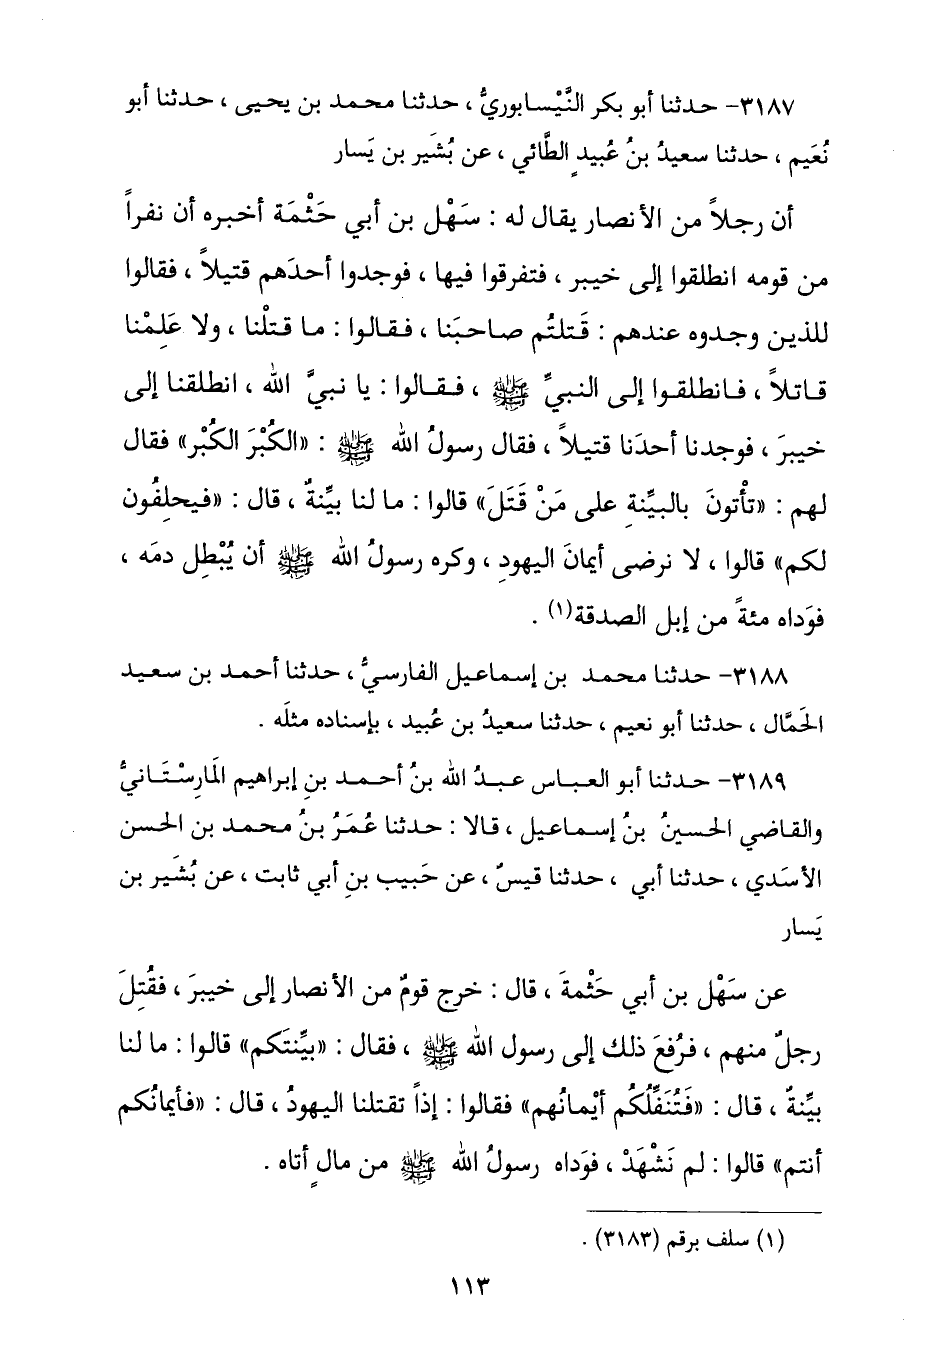 ٣١٨٧- حدثنا أبو بكر النَّيْسابوريُّ ، حدثنا محمد بن يحيى ، حدثنا أبو
نُعَيم ، حدثنا سعيدُ بنُ عُبيدٍ الطَّائي ، عن بُشَير بن يَسار
أن رجلاً من الأنصار يقال له : سَهْل بن أبي حَثْمَة أخبره أن نفراً
من قومه انطلقوا إلى خيبر ، فتفرقوا فيها ، فوجدوا أحدَهم قتيلاً ، فقالوا
للذين وجدوه عندهم : قَتلتُم صاحبَنا ، فقالوا : ما قتلْنا ، ولا عَلِمْنا
قاتلاً ، فانطلقوا إلى النبيِّ ﷺ ، فقالوا : يا نبيَّ الله ، انطلقنا إلى
خيبرَ ، فوجدنا أحدَنا قتيلاً ، فقال رسولُ الله ﷺ : «الكُبْرَ الكُبْر» فقال
لهم : «تأْتونَ بالبيِّنةِ على مَنْ قَتَلَ» قالوا : ما لنا بيِّنةٌ ، قال : «فيحلِفُون
لكم» قالوا ، لا نرضى أيمانَ اليهودِ ، وكره رسولُ الله ﷺ أن يُبْطِل دمَه ،
فوَداه مئةً من إبل الصدقة(١) .
٣١٨٨- حدثنا محمد بن إسماعيل الفارسيُّ ، حدثنا أحمد بن سعيد
الحَمَّال ، حدثنا أبو نعيم ، حدثنا سعيدُ بن عُبيد ، بإسناده مثلَه .
٣١٨٩- حدثنا أبو العباس عبدُ الله بنُ أحمد بنِ إبراهيم المَارِسْتَانيُّ
والقاضي الحسينُ بنُ إسماعيل ، قالا : حدثنا عُمَرُ بنُ محمد بن الحسن
الأسَدي ، حدثنا أبي ، حدثنا قيسٌ ، عن حَبيب بنِ أبي ثابت ، عن بُشَير بن
يَسار
عن سَهْل بن أبي حَثْمةَ ، قال : خرج قومٌ من الأنصار إلى خيبرَ ، فقُتِلَ
رجلٌ منهم ، فرُفعَ ذلك إلى رسول الله ﷺ ، فقال : «بيِّنتَكم» قالوا : ما لنا
بيِّنةٌ ، قال : «فَتُنَفِّلُكُم أيْمانُهم» فقالوا : إذاً تقتلنا اليهودُ ، قال : «فأيمانُكم
أنتم» قالوا : لم نَشْهَدْ ، فوَداه رسولُ الله ﷺ من مالٍ أتاه .
(١) سلف برقم (٣١٨٣) .
١١٣